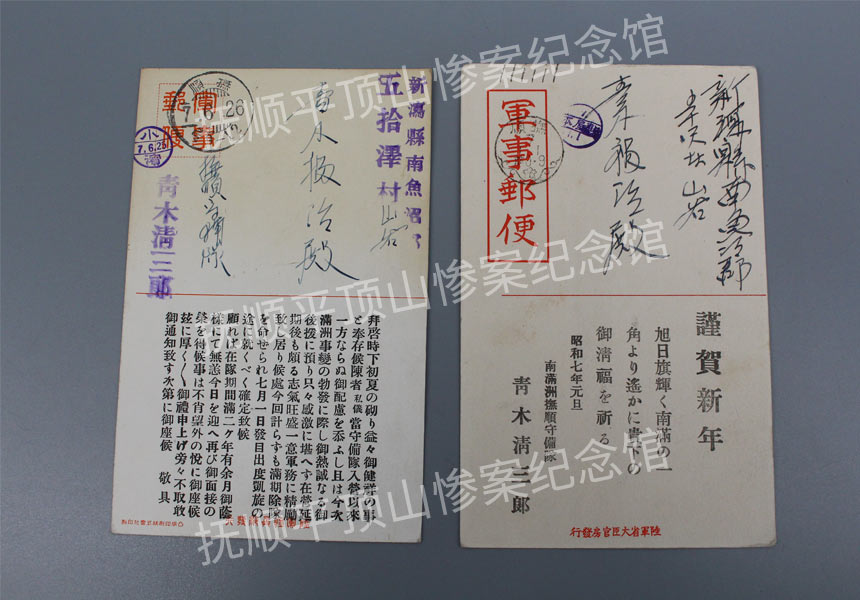 抚顺平顶山惨案纪念馆
新潟縣南魚沼郡
五拾澤村
山谷
殿
軍事
郵便
撫順
7.6.26
小濱
7.6.26
青木清三郎
拜啓時下初夏の砌り益々御健祥の事
と奉存候陳者私儀當守備隊入營以來
一方ならぬ御配慮を忝ふし且は今次
滿洲事變の勃發に際し御熱誠なる御
後援に預り只々感激に堪へす在營延
期後も頗る志氣旺盛一意軍務に精勵
致し居り候處今回計らすも滿期除隊
を命せられ七月一日發目出度凱旋の
途に就くべく確定致候
顧れば在隊期間滿二ヶ年有余月御蔭
樣にて無恙今日を迎へ再び御面接の
榮を得候事は不肖望外の悅に御座候
玆に厚く〱御禮申上げ旁々不取敢
御通知致す次第に御座候　敬具
抚顺平顶山惨案纪念馆
新潟縣南魚沼郡
山谷
青木福治殿
軍事郵便
謹賀新年
旭日旗輝く南滿の一
角より遙かに貴下の
御淸福を祈る
昭和七年元旦
南滿洲撫順守備隊
青木淸三郎
陸軍省大臣官房發行
抚顺平顶山惨案纪念馆